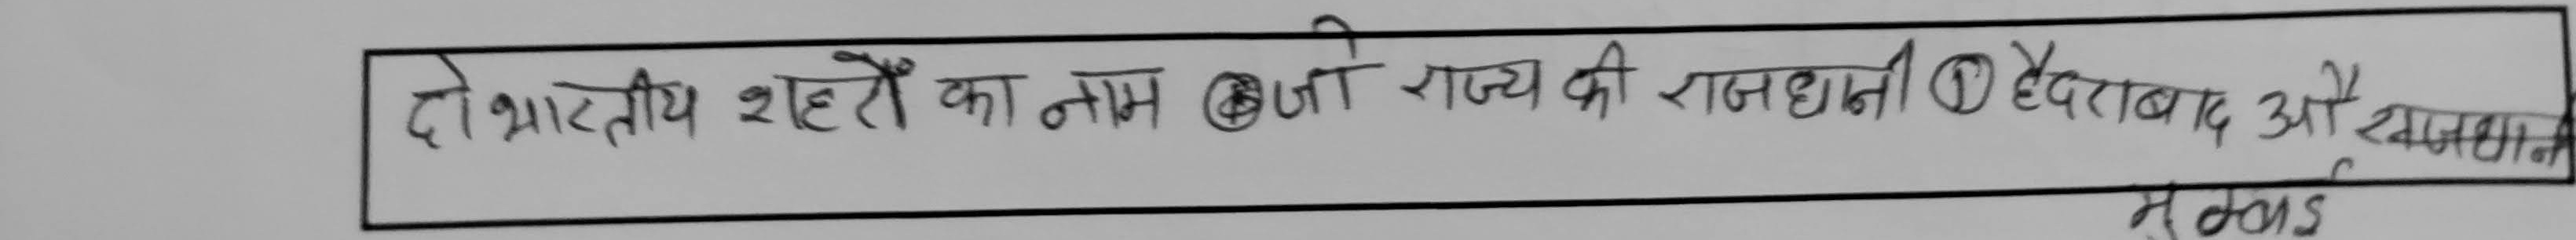 दो भारतीय शहरों का नाम जो राज्य की राजधानी ① हैदराबाद और राजधानी
मुम्बई